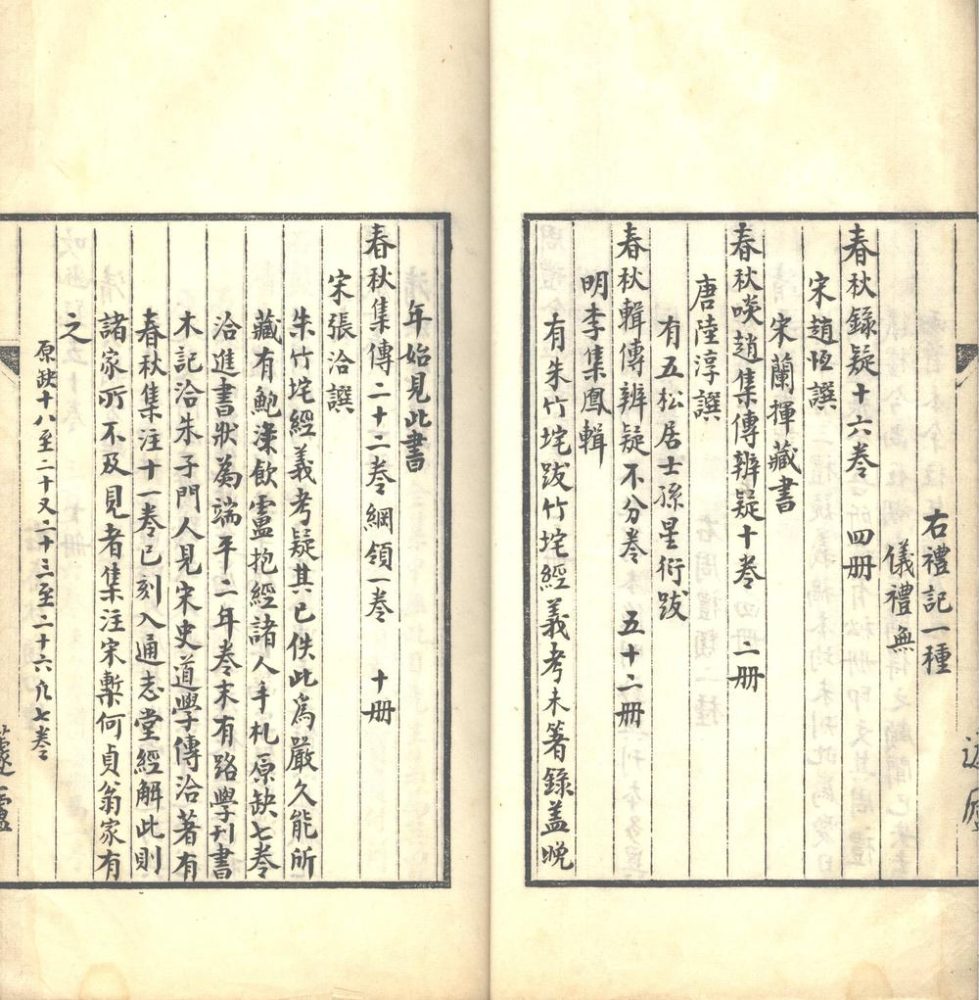 右禮記一種
儀禮無
春秋錄疑十六卷　四册
宋趙恆撰
宋蘭揮藏書
春秋啖趙集傳辨疑十卷　二册
唐陸淳譔
有五松居士孫星衍跋
春秋輯傳辨疑不分卷　五十二册
明李集鳳輯
有朱竹垞跋竹垞經義考未著錄盖晚
年始見此書
春秋集傳二十二卷綱領一卷　十册
宋張洽譔
朱竹垞經義考疑其已佚此爲嚴久能所
藏有鮑淥飲盧抱經諸人手札原缺七卷
洽進書狀爲端平二年卷末有路學刊書
木記洽朱子門人見宋史道學傳洽著有
春秋集注十一卷已刻入通志堂經解此則
諸家所不及見者集注宋槧何貞翁家有
之
原缺十八至二十又二十三至二十六凡七卷